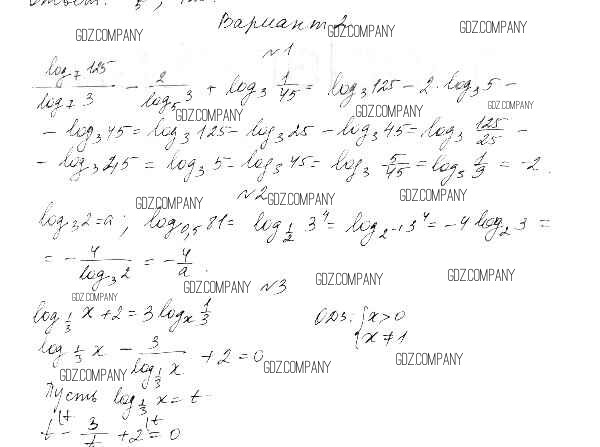 Вариант 2
GDZ.COMPANY GDZ.COMPANY GDZ.COMPANY
№1
log₇125/log₇3 - 2/log₅3 + log₃ 1/45 = log₃125 - 2·log₃5 -
GDZ.COMPANY GDZ.COMPANY GDZ.COMPANY
- log₃45 = log₃125 - log₃25 - log₃45 = log₃ 125/25 -
- log₃45 = log₃5 - log₃45 = log₃ 5/45 = log₃ 1/9 = -2.
№2
GDZ.COMPANY GDZ.COMPANY GDZ.COMPANY
log₃2=a; log₀,₅81 = log_{1/2} 3⁴ = log_{2^{-1}} 3⁴ = -4log₂3 =
= - 4/log₃2 = - 4/a.
GDZ.COMPANY GDZ.COMPANY GDZ.COMPANY
№3
GDZ.COMPANY
log_{1/3} x + 2 = 3 logₓ 1/3 ОДЗ: { x>0
x≠1
log_{1/3} x - 3/log_{1/3} x + 2 = 0
GDZ.COMPANY GDZ.COMPANY GDZ.COMPANY
Пусть log_{1/3} x = t
t - 3/t + 2 = 0